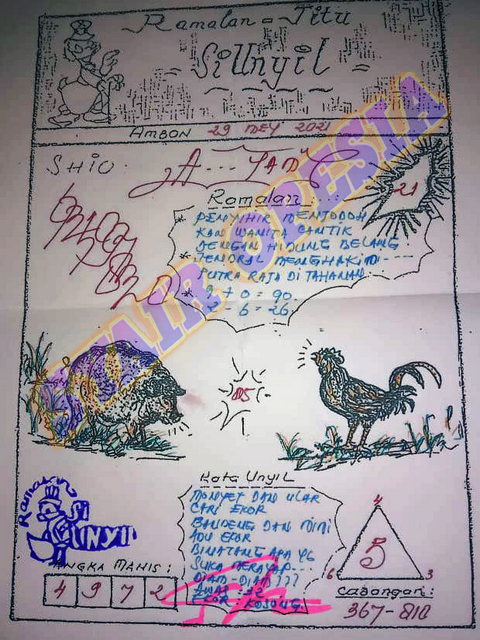 Ramalan = Jitu
Si Unyil
AMBON 29 MEY 2021
SHIO
Ramalan
21
* PENYIHIR MENJODOH
KAN WANITA CANTIK
DENGAN HIDUNG BELANG
* JENDRAL MENGHAKIMI
PUTRA RAJA DI TAHANAN
* 1 7 0 = 90
2 - 6 = 26
SYAIR OPESIA
05
Kata Unyil
MONYET DAN ULAR
CARI EKOR
BANDENG DAN MIMI
ADU EKOR
BINATANG APA YG
SUKA MERAYAP
DIAM-DIAM ???
EKOR : KOSONG
Ramalan
Si
UNYIL
ANGKA MANIS :
4 9 7 2
4
5
6 3
Cabangan :
367-810